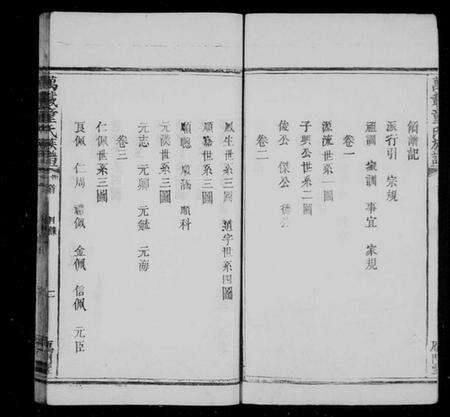 領譜記
派行引 宗規
卷一
祖訓 家訓 事宜 家規
源流世系一圖
子興公世系二圖
卷二
俊公 傑公
鳳生世系三圖 道字世系四圖
順嘉世系三圖
順聰 順海 順科
元漢世系三圖
元志 元卿 元敏 元海
卷三
仁佩世系三圖
良佩 仁周 禮佩 金佩 信佩 元臣
萬載童氏族譜